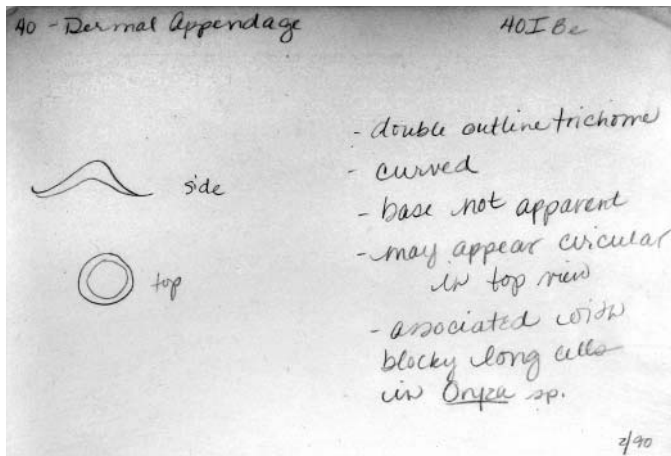 40 - Dermal Appendage
40I Be
side
top
- double outline trichome
- curved
- base not apparent
- may appear circular
in top view
- associated with
blocky long cells
in Oryza sp.
2/90